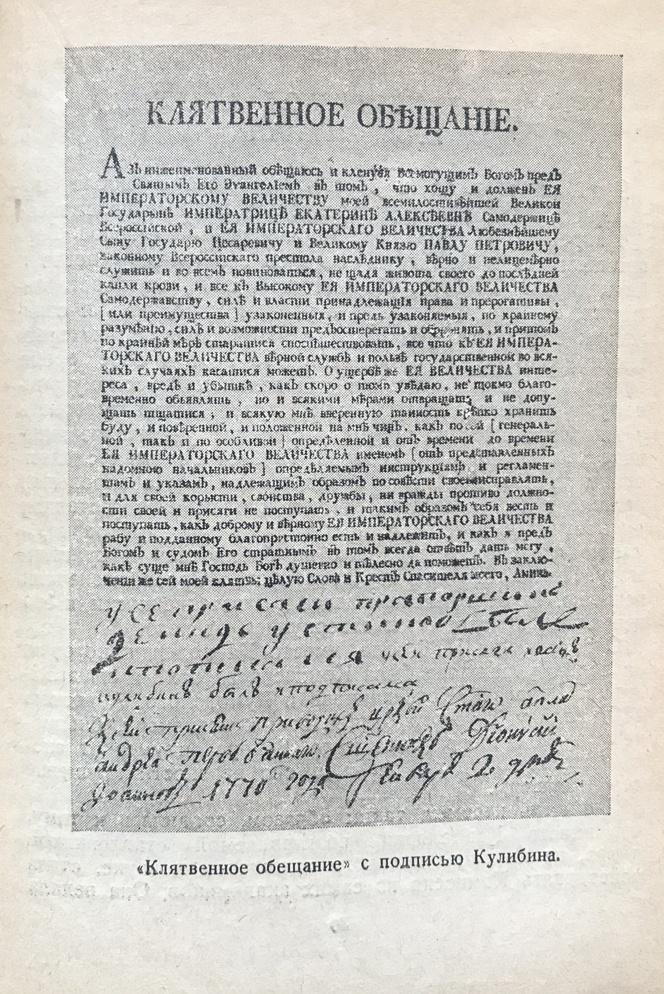 КЛЯТВЕННОЕ ОБѢЩАНІЕ.
АЗЪ нижеименованный обѣщаюсь и кленуся всемогущимЪ БогомЪ предЪ
СвятымЪ Его ЭвангеліемЪ вЪ томЪ, что хощу и долженЪ ЕЯ
ИМПЕРАТОРСКОМУ ВЕЛИЧЕСТВУ моей всемилостивѣйшей Великой
Государынѣ ИМПЕРАТРИЦѢ ЕКАТЕРИНѢ АЛЕКСѢЕВНѢ Самодержицѣ
Всероссійской, и ЕЯ ИМПЕРАТОРСКАГО ВЕЛИЧЕСТВА Любезнѣйшему
Сыну Государю Цесаревичу и Великому Князю ПАВЛУ ПЕТРОВИЧУ,
законному Всероссійскаго престола наслѣднику, вѣрно и нелицемѣрно
служить и во всемЪ повиноваться, не щадя живота своего до послѣдней
капли крови, и все кЪ Высокому ЕЯ ИМПЕРАТОРСКАГО ВЕЛИЧЕСТВА
Самодержавству, силѣ и власти принадлежащія права и прерогативы,
[ или преимущества ] узаконенныя, и предЪ узаконяемыя, по крайнему
разумѣнію, силѣ и возможности предостерегать и оборонять, и притомЪ
по крайнѣй мѣрѣ старатися споспѣшествовать, все что кЪ ЕЯ ИМПЕРА-
ТОРСКАГО ВЕЛИЧЕСТВА вѣрной службѣ и пользѣ государственной во вся-
кихЪ случаяхЪ касатися можетЪ. О ущербѣ же ЕЯ ВЕЛИЧЕСТВА инте-
реса, вредѣ и убыткѣ, какЪ скоро о томЪ увѣдаю, не токмо благо-
временно обЪявлять, но и всякими мѣрами отвращать и не допу-
щать тщатися, и всякую мнѣ ввѣренную тайность крѣпко хранить
буду, и повѣренной, и положенной на мнѣ чинЪ, какЪ по сей [ генераль-
ной, такЪ и по особливой ] опредѣленной и отЪ времени до времени
ЕЯ ИМПЕРАТОРСКАГО ВЕЛИЧЕСТВА именемЪ [ отЪ представленныхЪ
надомною начальниковЪ ] опредѣляемымЪ инструкціямЪ и регламен-
тамЪ и указамЪ, надлежащимЪ образомЪ по совѣсти своей исправлять,
и для своей корысти, свойства, дружбы, ни вражды противно должно-
сти своей и присяги не поступать, и такимЪ образомЪ себя весть и
поступать, какЪ доброму и вѣрному ЕЯ ИМПЕРАТОРСКАГО ВЕЛИЧЕСТВА
рабу и подданному благопристойно есть и надлежитЪ, и какЪ я предЪ
БогомЪ и судомЪ Его страшнымЪ вЪ томЪ всегда отвѣтЪ дать могу,
какЪ суще мнѣ Господь БогЪ душевно и тѣлесно да поможетЪ. ВЪ заклю-
ченіи же сей моей клятвы цѣлую Слова и КрестЪ Спасителя моего, Аминь.
у сей присяги
подписался
кулибинЪ былЪ и подписался
андрей
1770 года
«Клятвенное обещание» с подписью Кулибина.